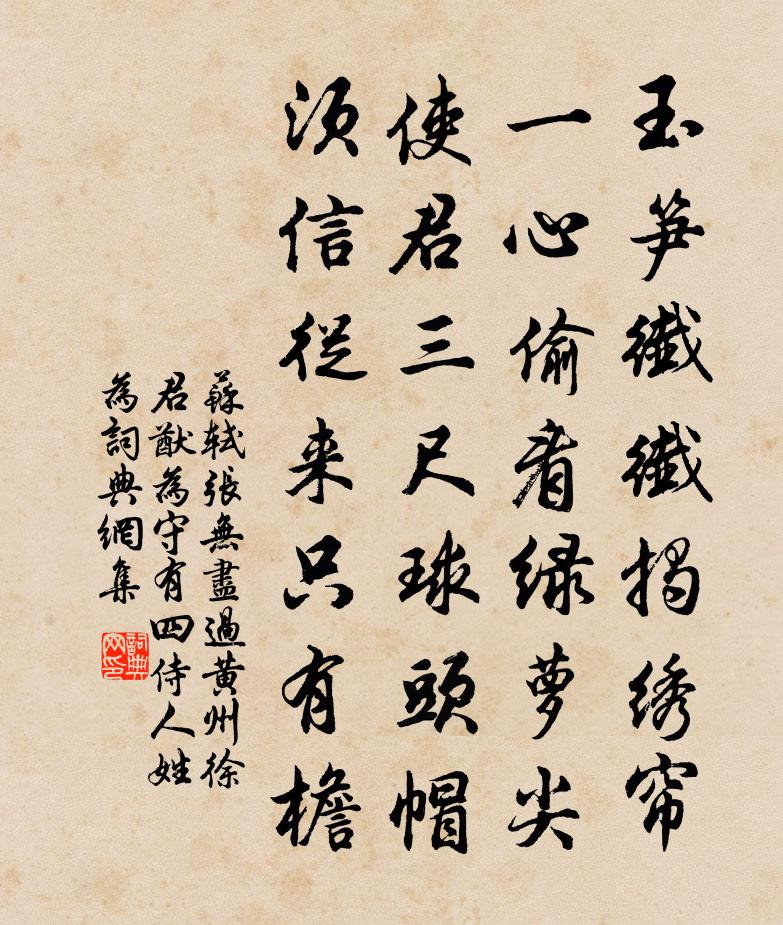 玉笋纖纖揭绣帘
一心偷看绿萝尖
使君三尺球頭帽
須信從来只有檐
蘇軾張無盡過黄州徐
君猷為守有四侍人姓
為詞典網集
詞典網印